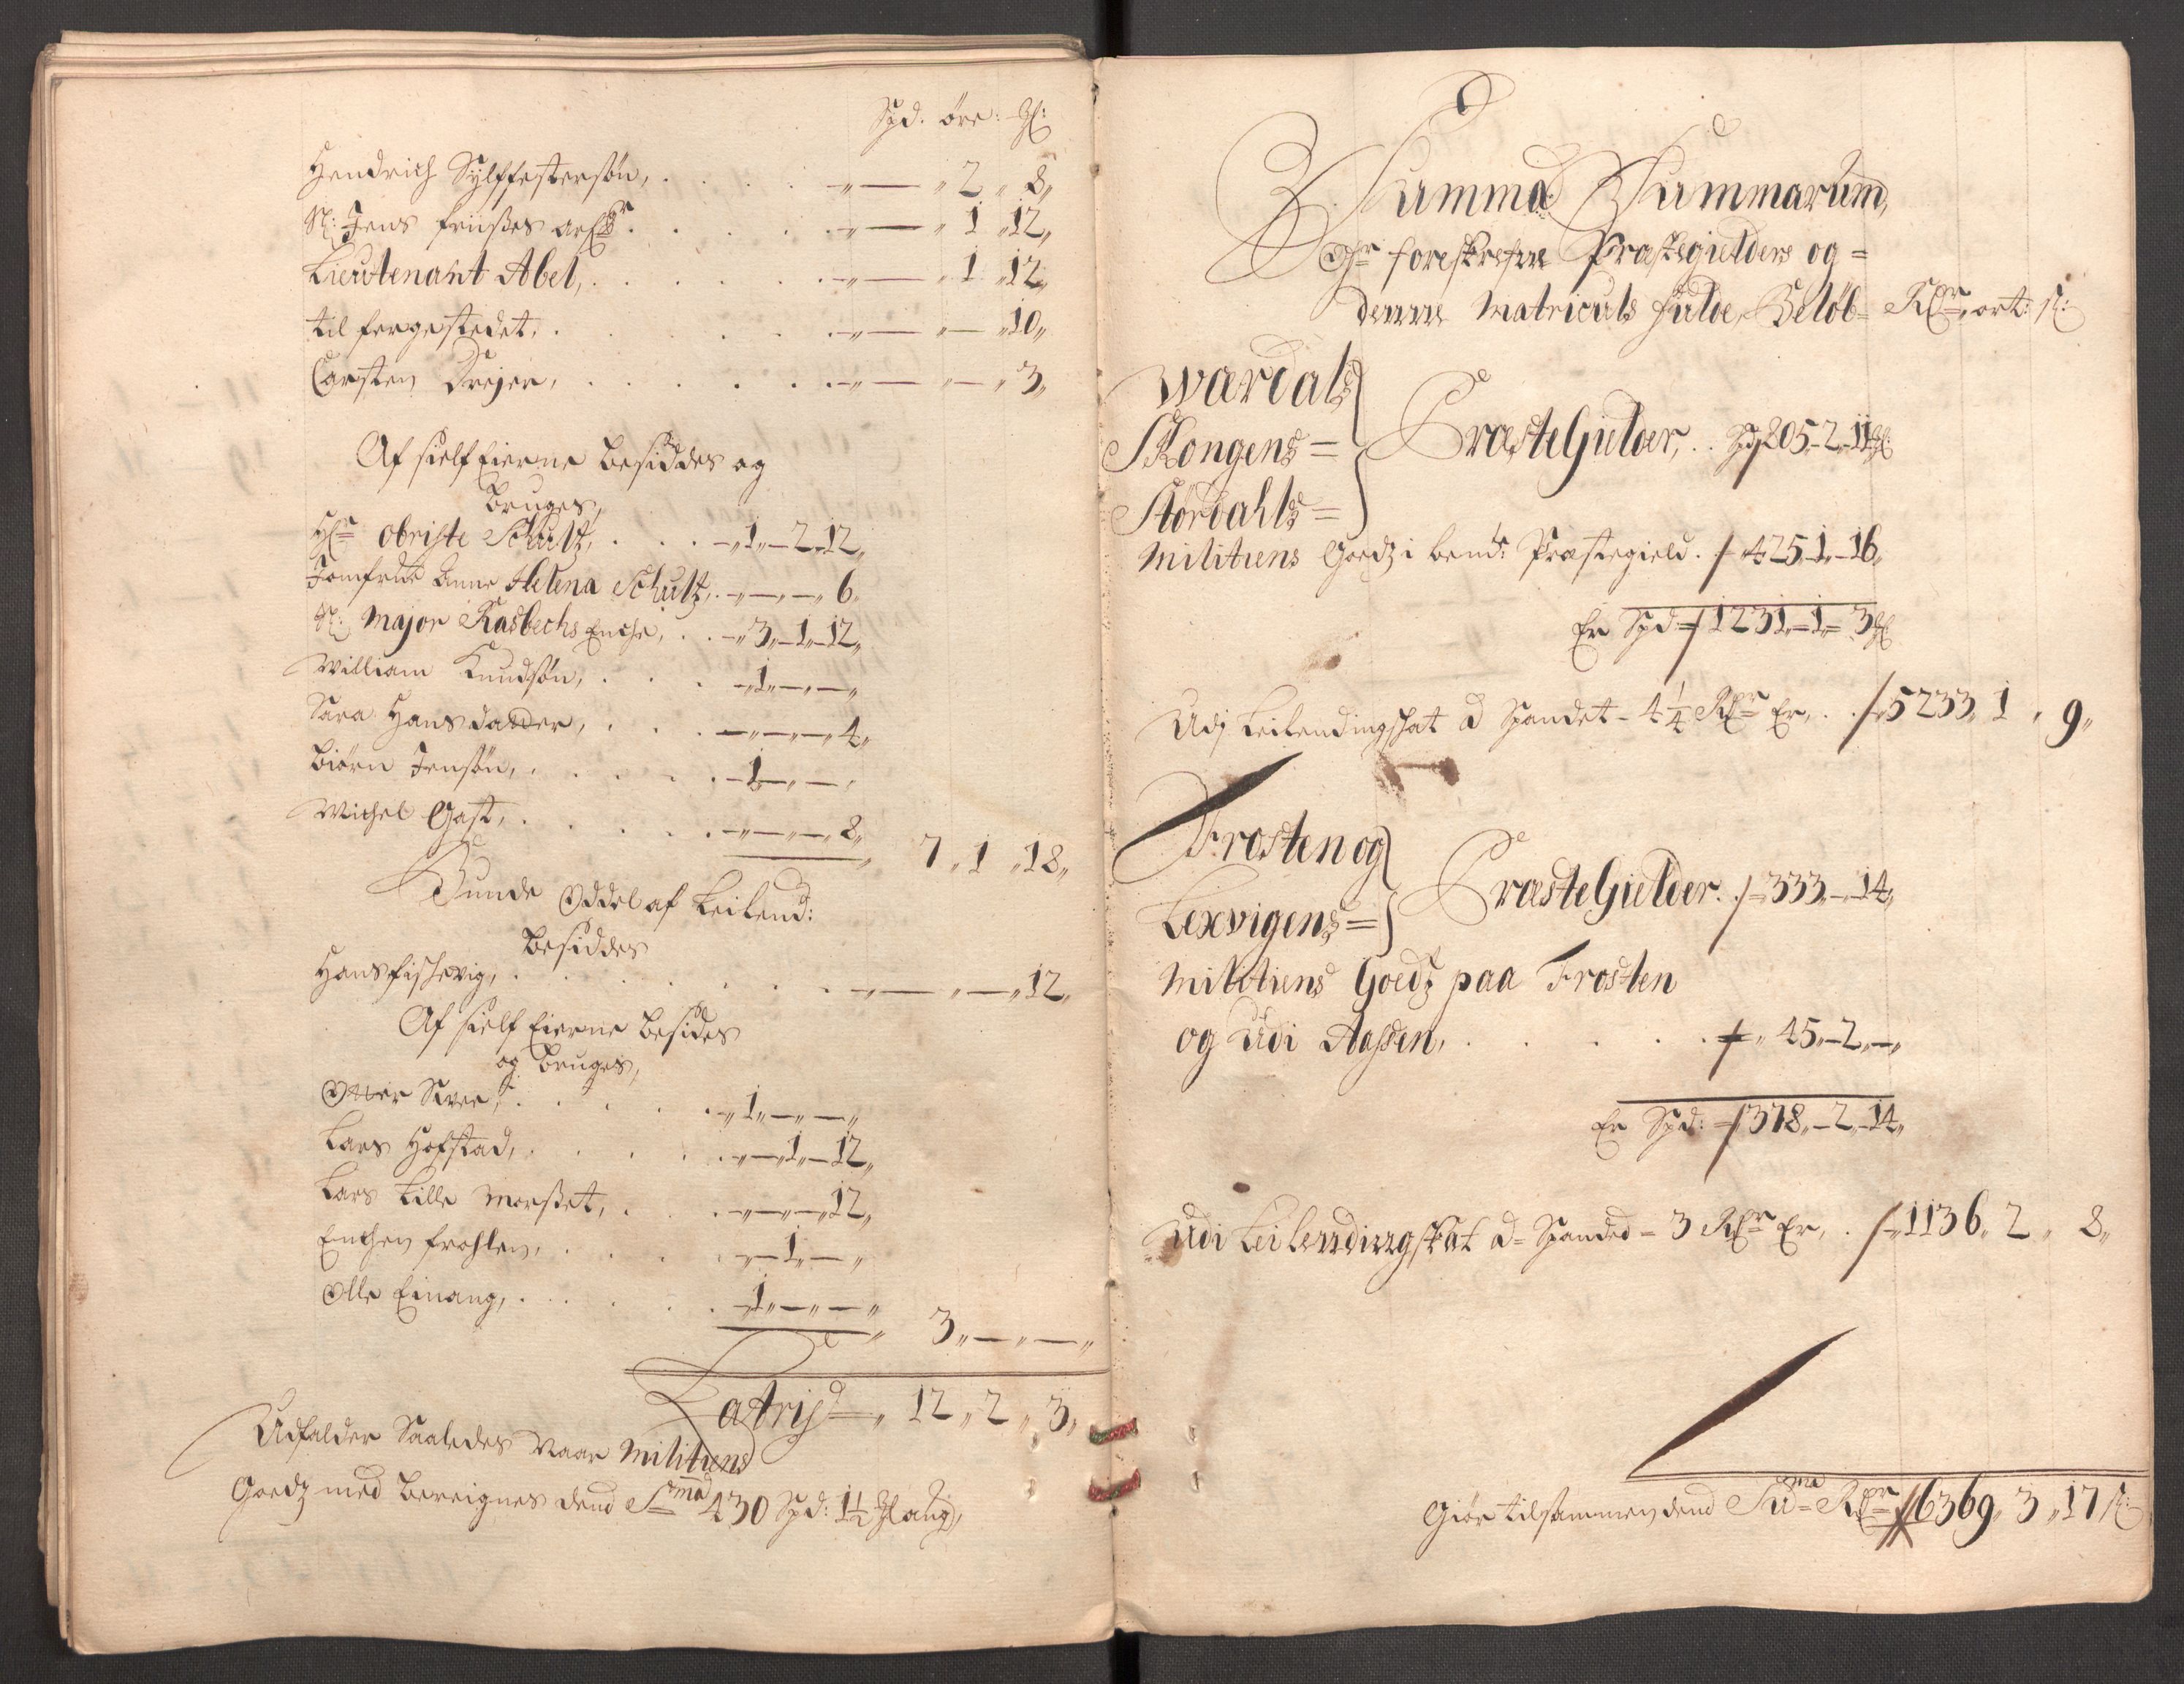 Spd. öre: gl:
Hendrich Sylffestersøn, . . . . -„— „2„ 8„
Sl: Jens friises arf: . . . . -„— „1 „12„
Lieutenant Abel, . . . . . -„— „1 „12„
til fergestedet, . . . . . -„— „— „10„
Carsten Dreyer, . . . . . -„— „— „3„
Af sielf Eierne besiddes og
Bruges,
Hr obriste Schultz, . . . -„1„-2„12„
Jomfrue Anne Helena Schultz, . -„—„—„6„
Sl: Major Rasbechs Enche, . . -„3„-1„12„
William Knudsøn, . . . -„1„—„—„
Sara Hansdatter, . . . —„—„—„4„
Biørn Jensøn, . . . . . -1„—„—„
Michel Gast, . . . . . -„—„—„8„
7„ 1 „18„
Bunde Oddel af Leilend:
besiddes
Hans fischevig, . . . . . -„— „—„12„
Af sielf Eierne besides
og bruges,
Otter Svee, . . . . . -„1„—„—„
Lars Hofstad, . . . . -„—„1„-12„
Lars Lille Morset, . . . -„—„—„12„
Enchen frohlen, . . . . -„—1„—„
Olle Einang, . . . . . -1„—„—„
3„—„—„
Latris „ 12„ 2„ 3„
Udfalder Saaledes naar Militiens
Goedz med bereignes dend Sma 430 Spd: 1½ gl aug,
Summa Summarum,
Ofr foreskrefne Præstegielders og =
denne Matriculs fulde, Beløb = Rdr, ort: s:
Wærdals
Skongens =
Størdahls =
Præste Gielder, . . Spd 805„-2„-11 gl:
Militiens Goedz i bemte Præstegield . / 425„-1„-16„
Er Spd = / 1231„-1„= 3 gl
Udj Leilendingschat à Spandet - 4¼ Rdr Er, . . / 5233„ 1 „ 9„
Frosten og
Lexvigens =
Præste Gielder . / = 333„-„-14„
Militiens Goedz paa Frosten
og Udi Aasen, . . . . . / „ 45„-2„-„
Er Spd: = / 378„-2„-14„
Udi Leilendingskat à = Spanded = 3 Rdr Er, . / „1136„ 2 „ 8„
Giør tilsammen dend Suma = Rdr // 6369„ 3 „17 s: